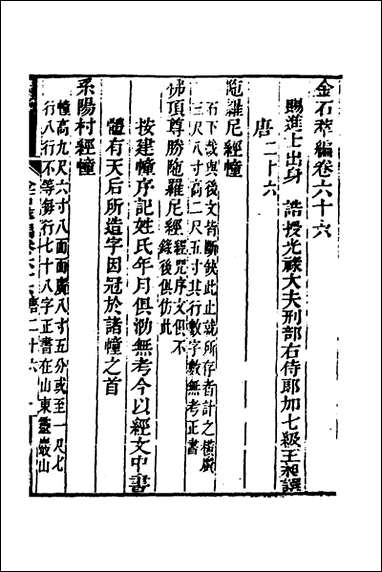 金石萃編卷六十六
賜進士出身　誥授光祿大夫刑部右侍郎加七級王昶譔
唐二十六
陁羅尼經幢
石下截與後文皆斷缺此止就所存者計之橫廣
三尺八寸高二尺五寸其行數字數無考正書
佛頂尊勝陁羅尼經經咒序文俱不
錄後俱仿此
按建幢序記姓氏年月俱泐無考今以經文中書
體有天后所造字因冠於諸幢之首
系陽村經幢
幢高九尺六寸八面面廣八寸五分或至一尺七
行八行不等每行七十八字正書在山東靈巖山
金石萃編卷六十六唐二十六　一